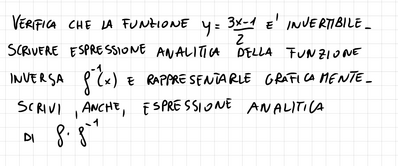 VERIFICA CHE LA FUNZIONE y = (3x-1)/2 E' INVERTIBILE_
SCRIVERE ESPRESSIONE ANALITICA DELLA FUNZIONE
INVERSA f⁻¹(x) E RAPPRESENTARLE GRAFICAMENTE_
SCRIVI, ANCHE, ESPRESSIONE ANALITICA
DI f · f⁻¹